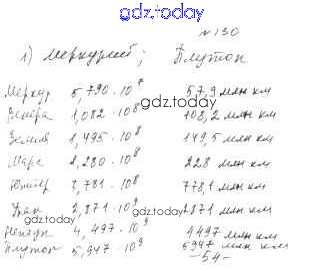 gdz.today
№130
1) Меркурий; Плутон
Меркур 5,790·10⁷ 57,9 млн км
gdz.today
Венера 1,082·10⁸ 108,2 млн км
Земля 1,495·10⁸ 149,5 млн км
Марс 2,280·10⁸ 228 млн км
Юпитер 7,781·10⁸ 778,1 млн км
Уран 2,871·10⁹ 2871 млн км
gdz.today
Нептун 4,497·10⁹ 4497 млн км
Плутон 5,947·10⁹ 5947 млн км
-54-